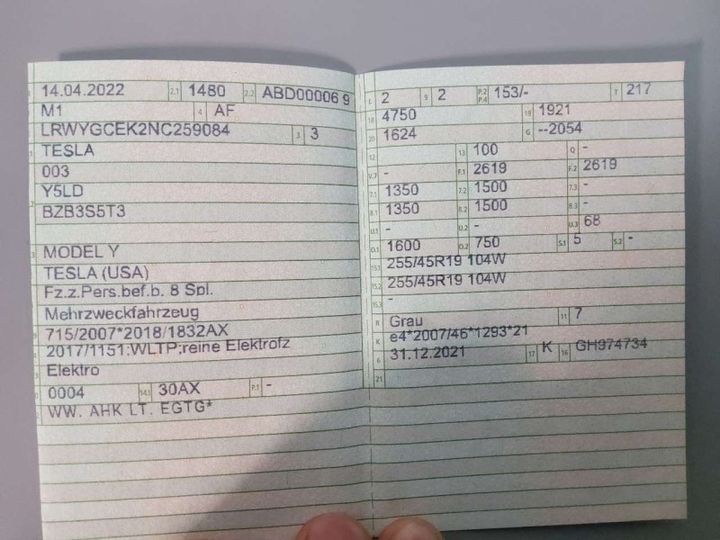 14.04.2022 2.1 1480 2.2 ABD00006 9
M1 4 AF
LRWYGCEK2NC259084 3 3
TESLA
003
Y5LD
BZB3S5T3
MODEL Y
TESLA (USA)
Fz.z.Pers.bef.b. 8 Spl.
Mehrzweckfahrzeug
715/2007*2018/1832AX
2017/1151;WLTP;reine Elektrofz
Elektro
0004 14.1 30AX P.1 -
WW. AHK LT. EGTG*
L 2 9 2 P.2 P.4 153/- T 217
18 4750 19 1921
20 1624 G --2054
12 - 13 100 Q -
V.7 - F.1 2619 F.2 2619
7.1 1350 7.2 1500 7.3 -
8.1 1350 8.2 1500 8.3 -
U.1 - U.2 - U.3 68
O.1 1600 O.2 750 S.1 5 S.2 -
15.1 255/45R19 104W
15.2 255/45R19 104W
15.3 -
R Grau 11 7
K e4*2007/46*1293*21
6 31.12.2021 17 K 16 GH974734
21